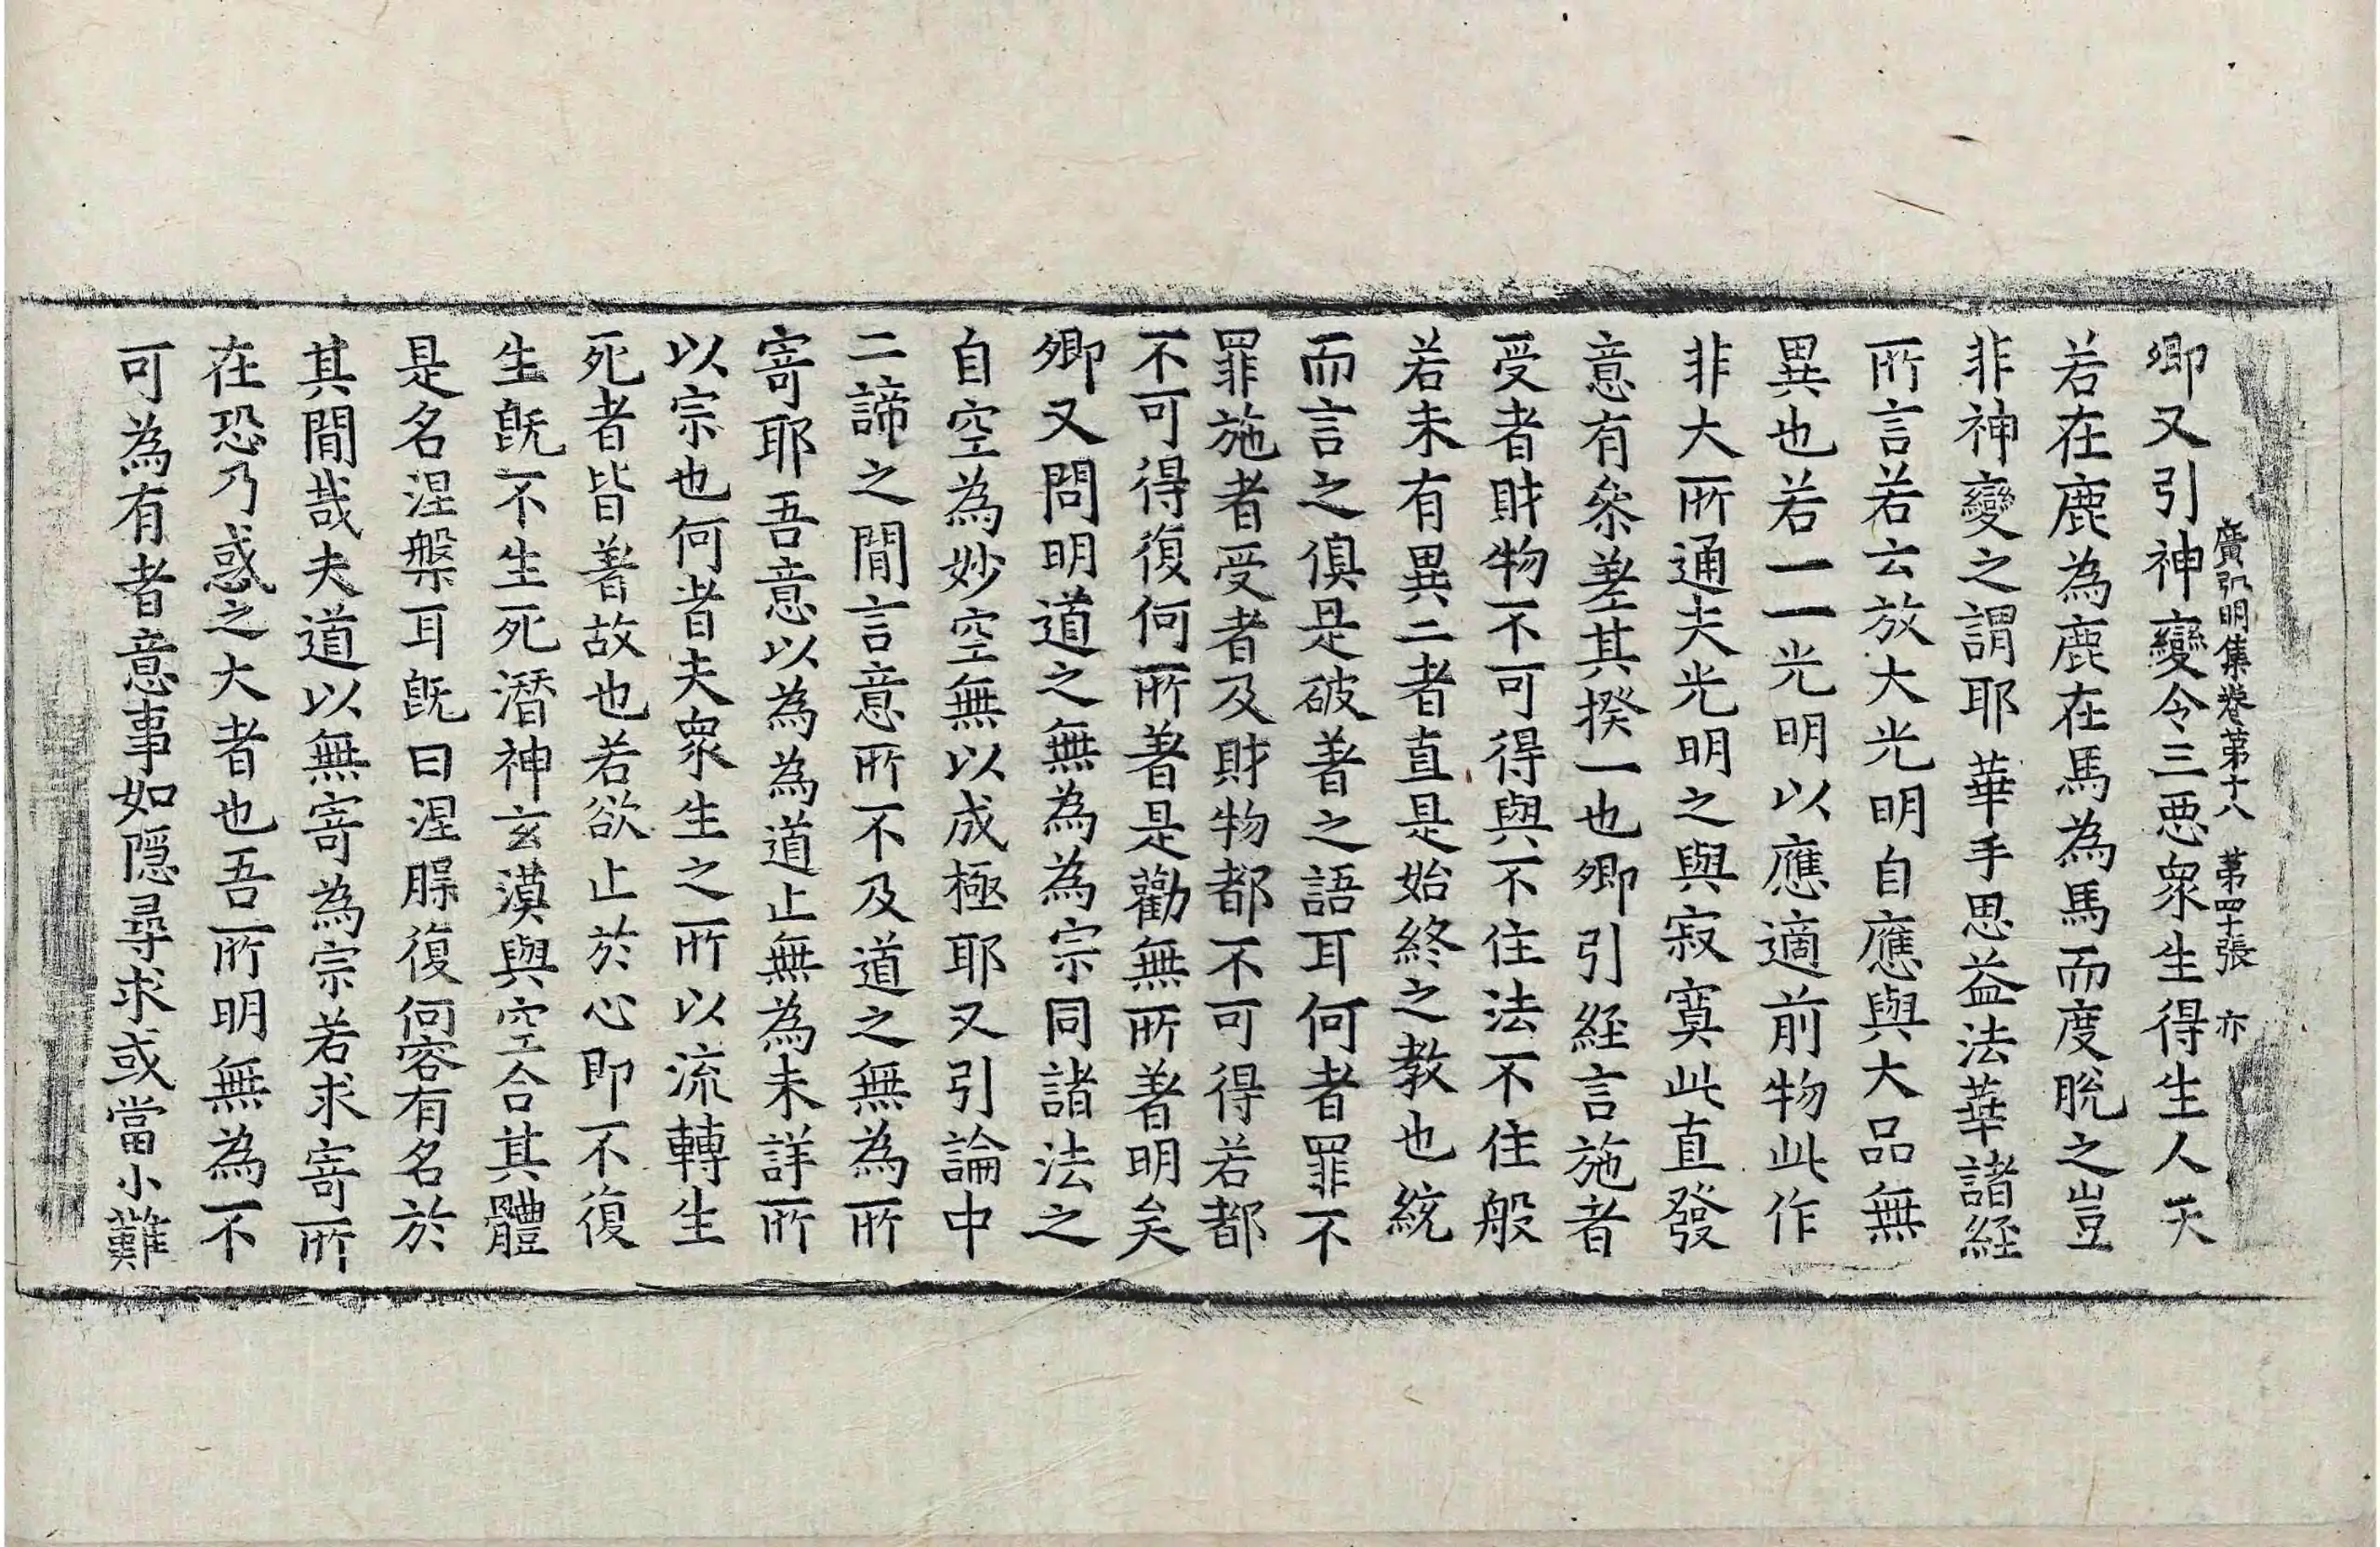 廣弘明集卷第十八 第四十張 亦
卿又引神變令三惡衆生得生人天
若在鹿為鹿在馬為馬而度脫之豈
非神變之謂耶華手思益法華諸經
所言若云放大光明自應與大品無
異也若一一光明以應適前物此作
非大所通夫光明之與寂寞此直發
意有叅差其揆一也卿引経言施者
受者財物不可得與不住法不住般
若未有異二者直是始終之教也統
而言之俱是破著之語耳何者罪不
罪施者受者及財物都不可得若都
不可得復何所著是勸無所著明矣
卿又問明道之無為為宗同諸法之
自空為妙空無以成極耶又引論中
二諦之間言意所不及道之無為所
寄耶吾意以為為道止無為未詳所
以宗也何者夫衆生之所以流轉生
死者皆著故也若欲止於心即不復
生旣不生死潛神玄漠與空合其體
是名涅槃耳旣曰涅槃復何容有名於
其間哉夫道以無寄為宗若求寄所
在恐乃惑之大者也吾所明無為不
可為有者意事如隱尋求或當小難